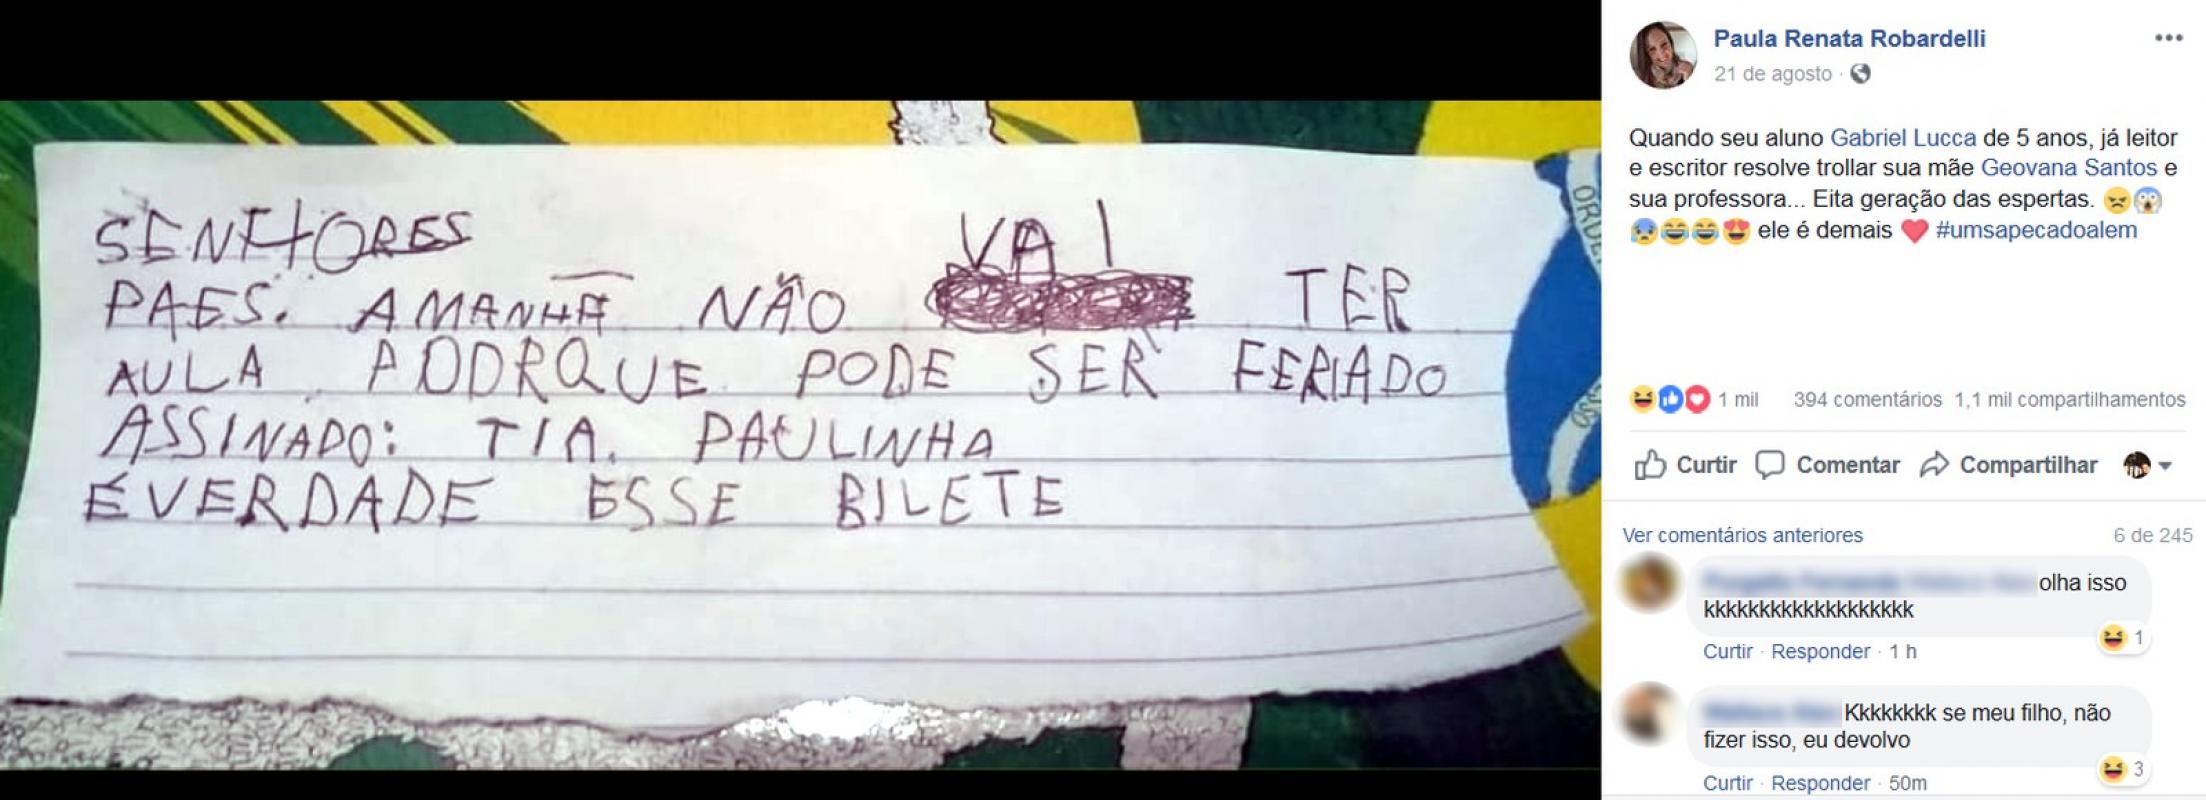 SENHORES
VAI
PAES. AMANHÃ NÃO TER
AULA PODRQUE PODE SER FERIADO
ASSINADO: TIA. PAULINHA
É VERDADE ESSE BILETE
Paula Renata Robardelli
21 de agosto
Quando seu aluno Gabriel Lucca de 5 anos, já leitor
e escritor resolve trollar sua mãe Geovana Santos e
sua professora... Eita geração das espertas. 😠😱
😰😂😂😍 ele é demais ❤️ #umsapecadoalem
1 mil 394 comentários 1,1 mil compartilhamentos
Curtir Comentar Compartilhar
Ver comentários anteriores 6 de 245
olha isso
kkkkkkkkkkkkkkkkkkk
1
Curtir · Responder · 1 h
Kkkkkkkk se meu filho, não
fizer isso, eu devolvo
3
Curtir · Responder · 50m